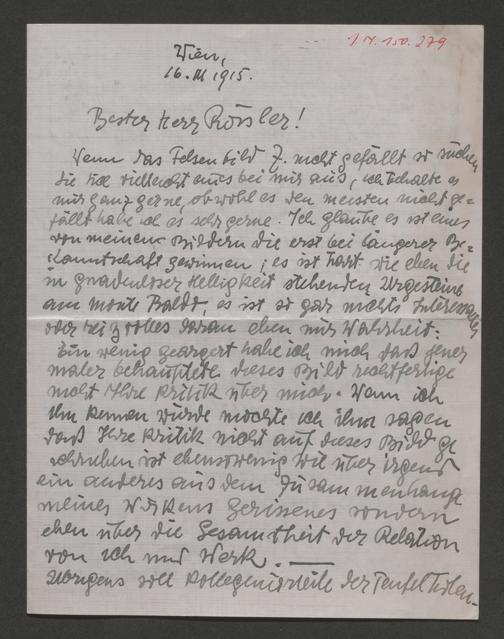 1.N. 150.279
Wien,
16. III 1915.
Bester Herr Rössler!
Wenn das Felsenbild J. nicht gefällt so suchen
Sie sich vielleicht eines bei mir aus, ich behalte es
mir ganz gerne, obwohl es den meisten nicht ge=
fällt habe ich es sehr gerne. Ich glaube es ist eines
von meinen Bildern die erst bei längerer Be=
kanntschaft gewinnen; es ist hart wie eben die
in gnadenloser Helligkeit stehenden Urgesteine
am Monte Baldo, es ist so gar nichts Interessantes
oder reizvolles daran eben nur Wahrheit.
Ein wenig geärgert habe ich mich daß jener
maler behauptete dieses Bild rechtfertige
nicht Ihre Kritik über mich. Wenn ich
ihn kennen würde möchte ich ihm sagen
daß Ihre Kritik nicht auf dieses Bild ge
schrieben ist ebensowenig wie über irgend
ein anderes aus dem Zusammenhang
meines Wirkens gerissenes sondern
eben über die Gesamtheit der Relation
von ich und Werk. —
Übrigens soll Kollegenurteile der Teufel holen.